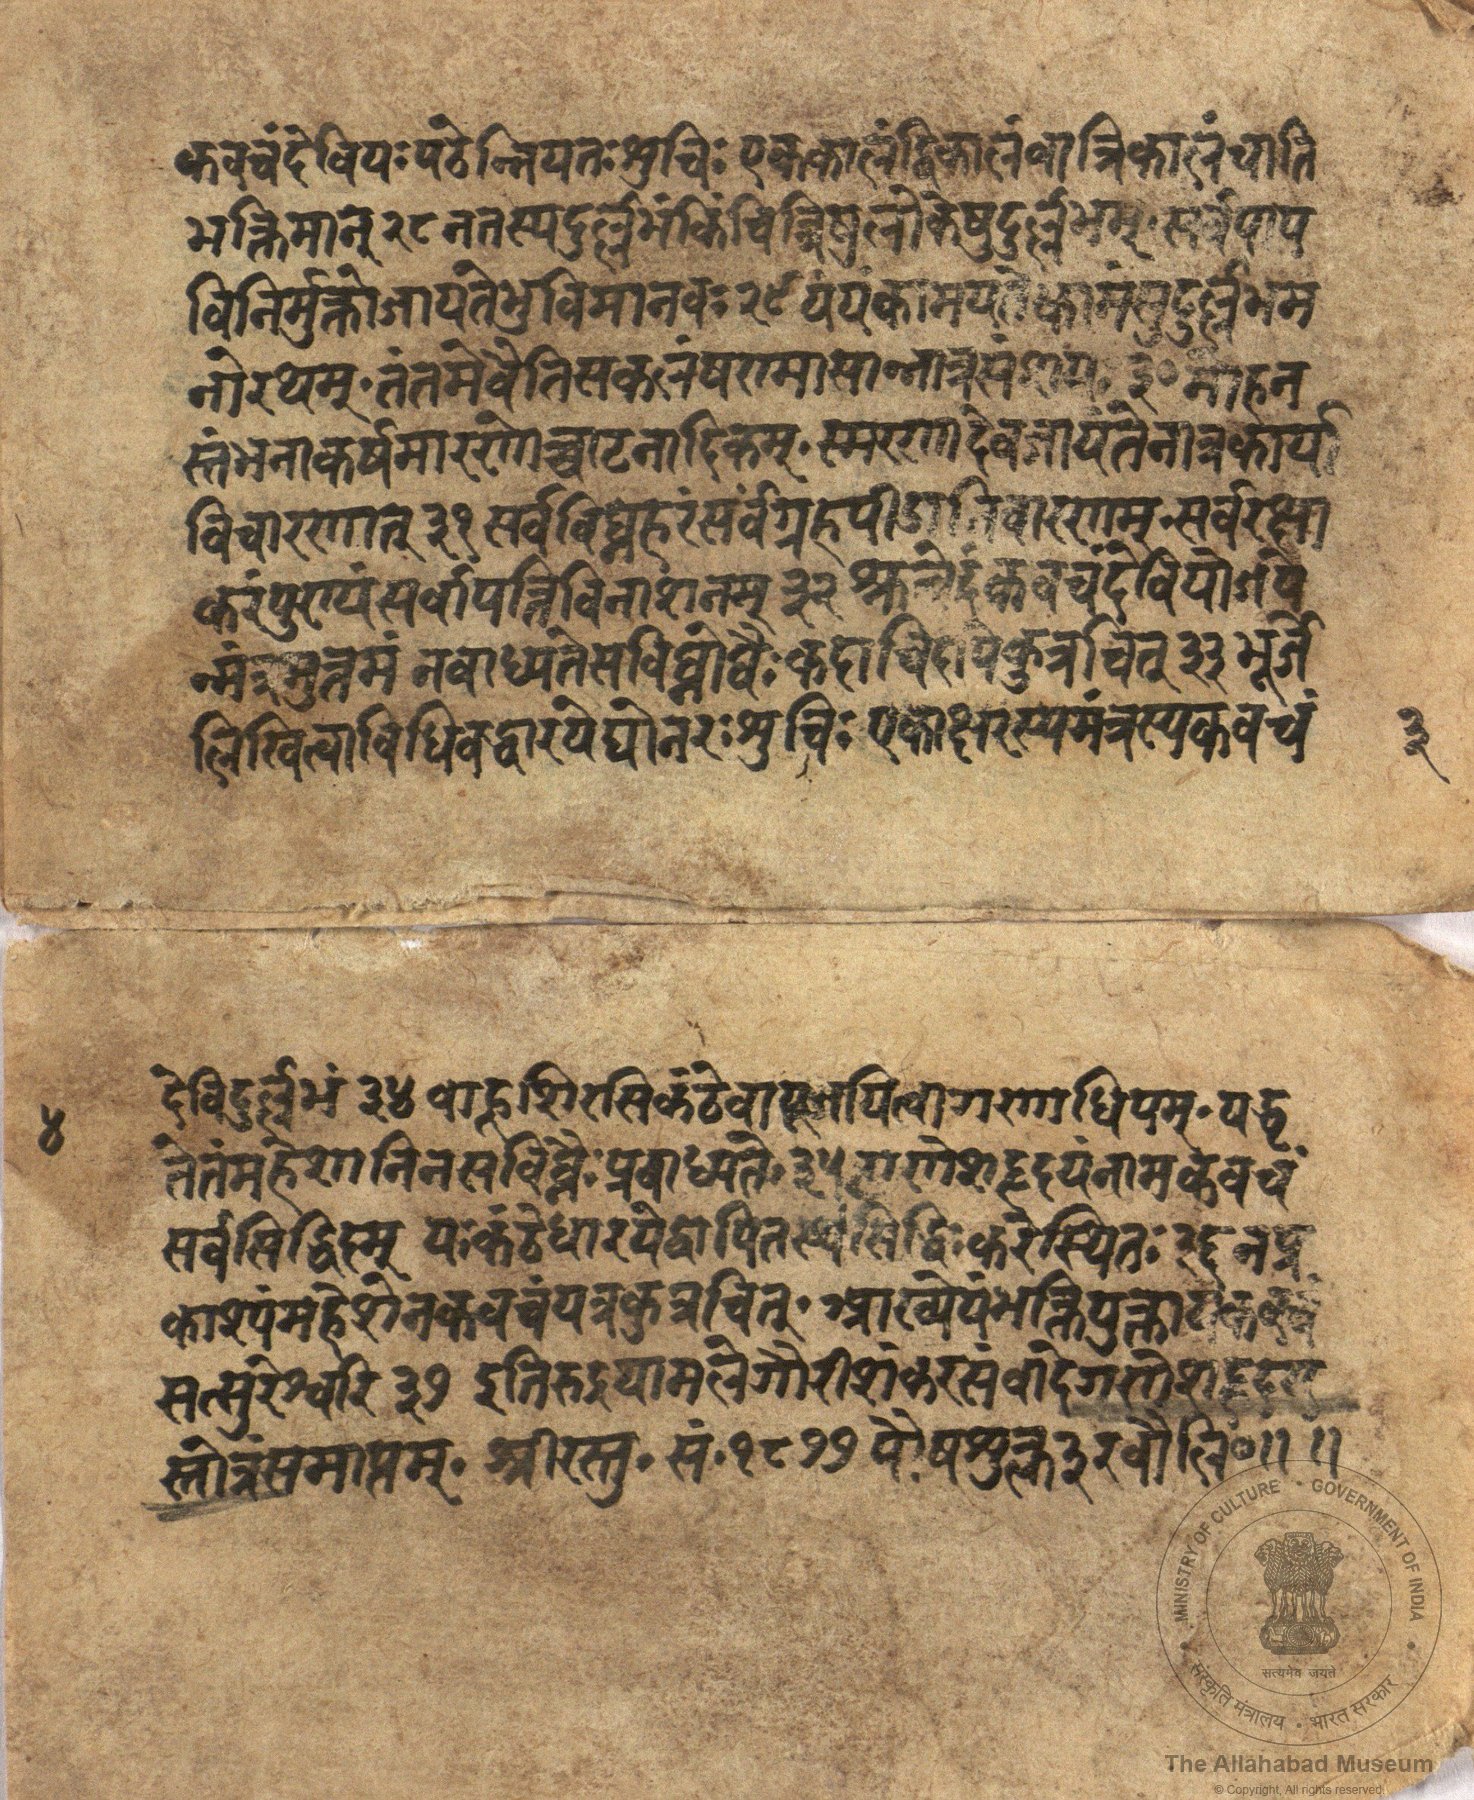 कवचंदेवियःपठेन्नियतःशुचिः एककालंद्विकालंवात्रिकालंचाति
भक्तिमान् २८ नतस्यदुर्ल्लभंकिंचित्त्रिषुलोकेषुदुर्ल्लभम्॰ सर्वपाप
विनिर्मुक्तोजायतेभुविमानवः २९ यंयंकामयतेकामंसुदुर्ल्लभम
नोरथम्॰ तंतमेवैतिसकलंषण्मासान्नात्रसंशयः ३० मोहन
स्तंभनाकर्षमारणोच्चाटनादिकम्॰ स्मरणादेवजायंतेनात्रकार्या
विचारणात् ३१ सर्वविघ्नहरंसर्वग्रहपीडानिवारणम्॰ सर्वरक्षा
करंपुण्यंसर्वापत्तिविनाशनम् ३२ कवचंदेवियोजपे
न्मंत्रमुत्तमं नवाध्यतेसविघ्नौघैः कदाचिदपिकुत्रचित् ३३ भूर्जे
लिखित्वाविधिवद्धारयेद्योनरःशुचिः एकाक्षरस्यमंत्रस्यकवचं
३
देविदुर्ल्लभं ३४ वाहूशिरसिकंठेवापूजयित्वागणाधिपम्॰ यद्धृ
४
तेतंमहेशानिनसविघ्नैःप्रवाध्यते॰ ३५ गणेशहृदयंनामकवचं
सर्वसिद्धिदम् यःकंठेधारयेद्वापितस्यसिद्धिःकरेस्थितः ३६ नप्र
काश्यंमहेशेनकवचंयत्रकुत्रचित्॰ भक्तियुक्ताय
सत्सुरेश्वरि ३७ इतिरुद्रयामलेगौरीशंकरसंवादेगणेशहृदय
स्तोत्रंसमाप्तम्॰ श्रीरस्तु॰ सं॰ १८७७ पौषशुक्ल ३ रवौलि॰॥ ॥
MINISTRY OF CULTURE · GOVERNMENT OF INDIA
सत्यमेव जयते
संस्कृति मंत्रालय · भारत सरकार
The Allahabad Museum
© Copyright, All rights reserved.